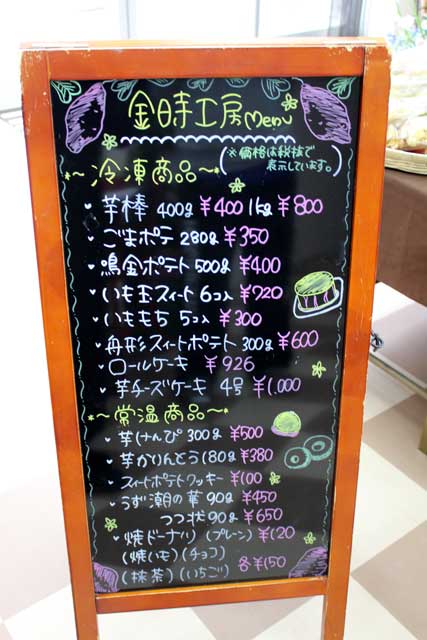 金時工房 Menu
(※価格は税抜で
表示しています。)
*~冷凍商品~*
芋棒 400g ¥400 1kg ¥800
ごまポテ 280g ¥350
鳴金ポテト 500g ¥400
いも玉スィート 6コ入 ¥720
いももち 5コ入 ¥300
舟形スィートポテト 300g ¥600
ロールケーキ ¥926
芋チーズケーキ 4号 ¥1,000
*~常温商品~*
芋けんぴ 300g ¥500
芋かりんとう 180g ¥380
スィートポテトクッキー ¥100
うず潮の華 90g ¥450
つつ状 90g ¥650
焼ドーナツ (プレーン) ¥120
(焼いも) (チョコ)
(抹茶) (いちご) 各¥150